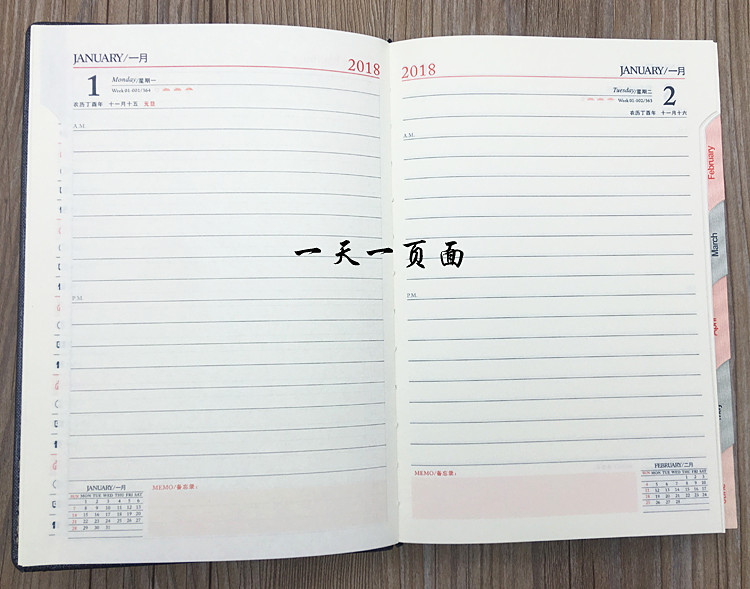 JANUARY/一月
2018
1
Monday/星期一
Week 01-001/364
农历丁酉年 十一月十五 元旦
A.M.
P.M.
JANUARY/一月
SUN MON TUE WED THU FRI SAT
1 2 3 4 5 6
7 8 9 10 11 12 13
14 15 16 17 18 19 20
21 22 23 24 25 26 27
28 29 30 31
MEMO/备忘录:
一天一页面
2018
JANUARY/一月
Tuesday/星期二
2
Week 01-002/363
农历丁酉年 十一月十六
A.M.
P.M.
MEMO/备忘录:
FEBRUARY/二月
SUN MON TUE WED THU FRI SAT
1 2 3
4 5 6 7 8 9 10
11 12 13 14 15 16 17
18 19 20 21 22 23 24
25 26 27 28
February
March